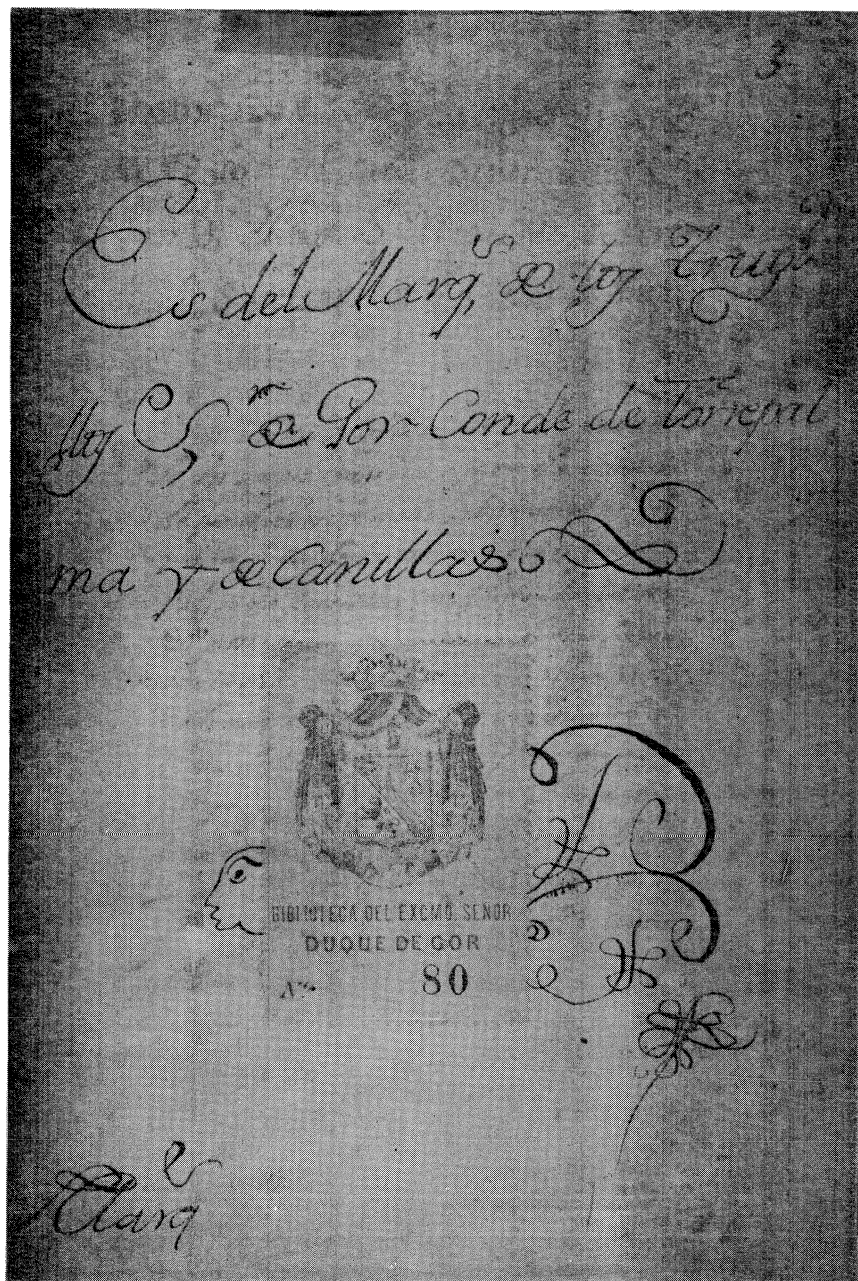 3
Es del Marq.s de los Truxi
llos S.r de Gor Conde de Torrepal
ma y de Canillas
BIBLIOTECA DEL EXCMO. SEÑOR
DUQUE DE GOR
No. 80
Marq